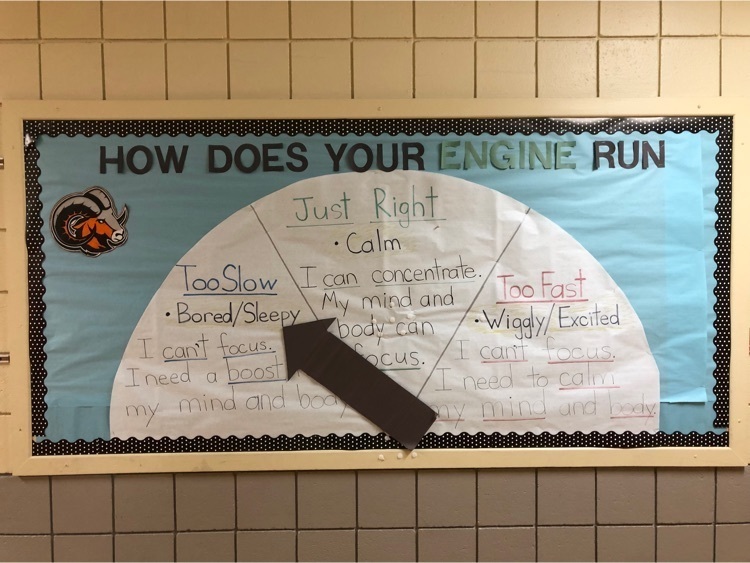 HOW DOES YOUR ENGINE RUN
Just Right
• Calm
I can concentrate.
My mind and
body can
focus.
Too Slow
• Bored/Sleepy
I can't focus.
I need a boost
my mind and body
Too Fast
• Wiggly/Excited
I can't focus.
I need to calm
my mind and body.